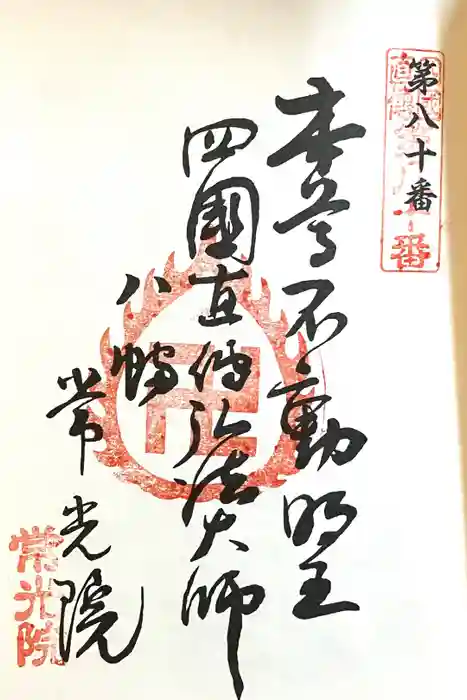 第八十番
本尊不動明王
四國直傳弘法大師
八幡
常光院
卍
常光院